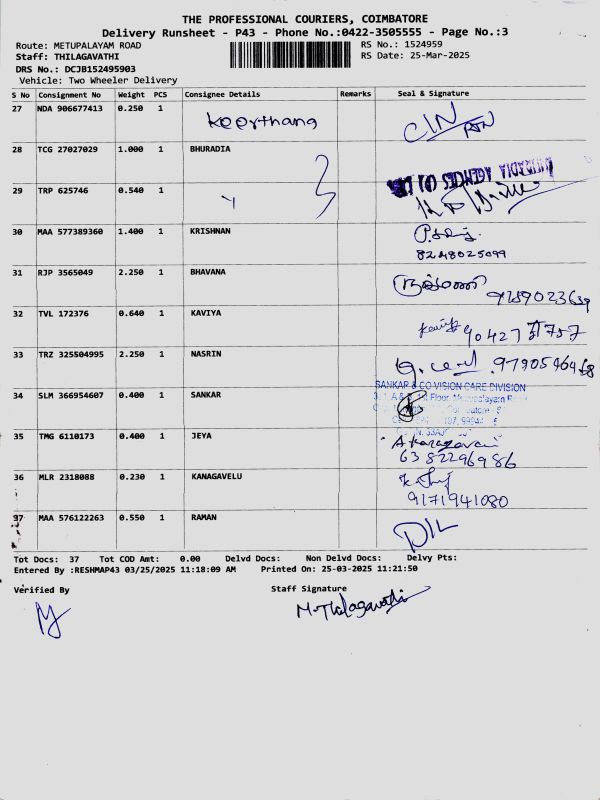 THE PROFESSIONAL COURIERS, COIMBATORE
Delivery Runsheet - P43 - Phone No.:0422-3505555 - Page No.:3
Route: METUPALAYAM ROAD RS No.: 1524959
Staff: THILAGAVATHI RS Date: 25-Mar-2025
DRS No.: DCJB152495903
Vehicle: Two Wheeler Delivery
S No Consignment No Weight PCS Consignee Details Remarks Seal & Signature
27 NDA 906677413 0.250 1 Keerthana
28 TCG 27027029 1.000 1 BHURADIA
29 TRP 625746 0.540 1
30 MAA 577389360 1.400 1 KRISHNAN
8248025099
31 RJP 3565049 2.250 1 BHAVANA
32 TVL 172376 0.640 1 KAVIYA
33 TRZ 325504995 2.250 1 NASRIN
34 SLM 366954607 0.400 1 SANKAR SANKAR & CO VISION CARE DIVISION
35 TMG 6110173 0.400 1 JEYA
6382296986
36 MLR 2318088 0.230 1 KANAGAVELU
9171941080
37 MAA 576122263 0.550 1 RAMAN
Tot Docs: 37 Tot COD Amt: 0.00 Delvd Docs: Non Delvd Docs: Delvy Pts:
Entered By :RESHMAP43 03/25/2025 11:18:09 AM Printed On: 25-03-2025 11:21:50
Verified By Staff Signature
M. Thilagavathi